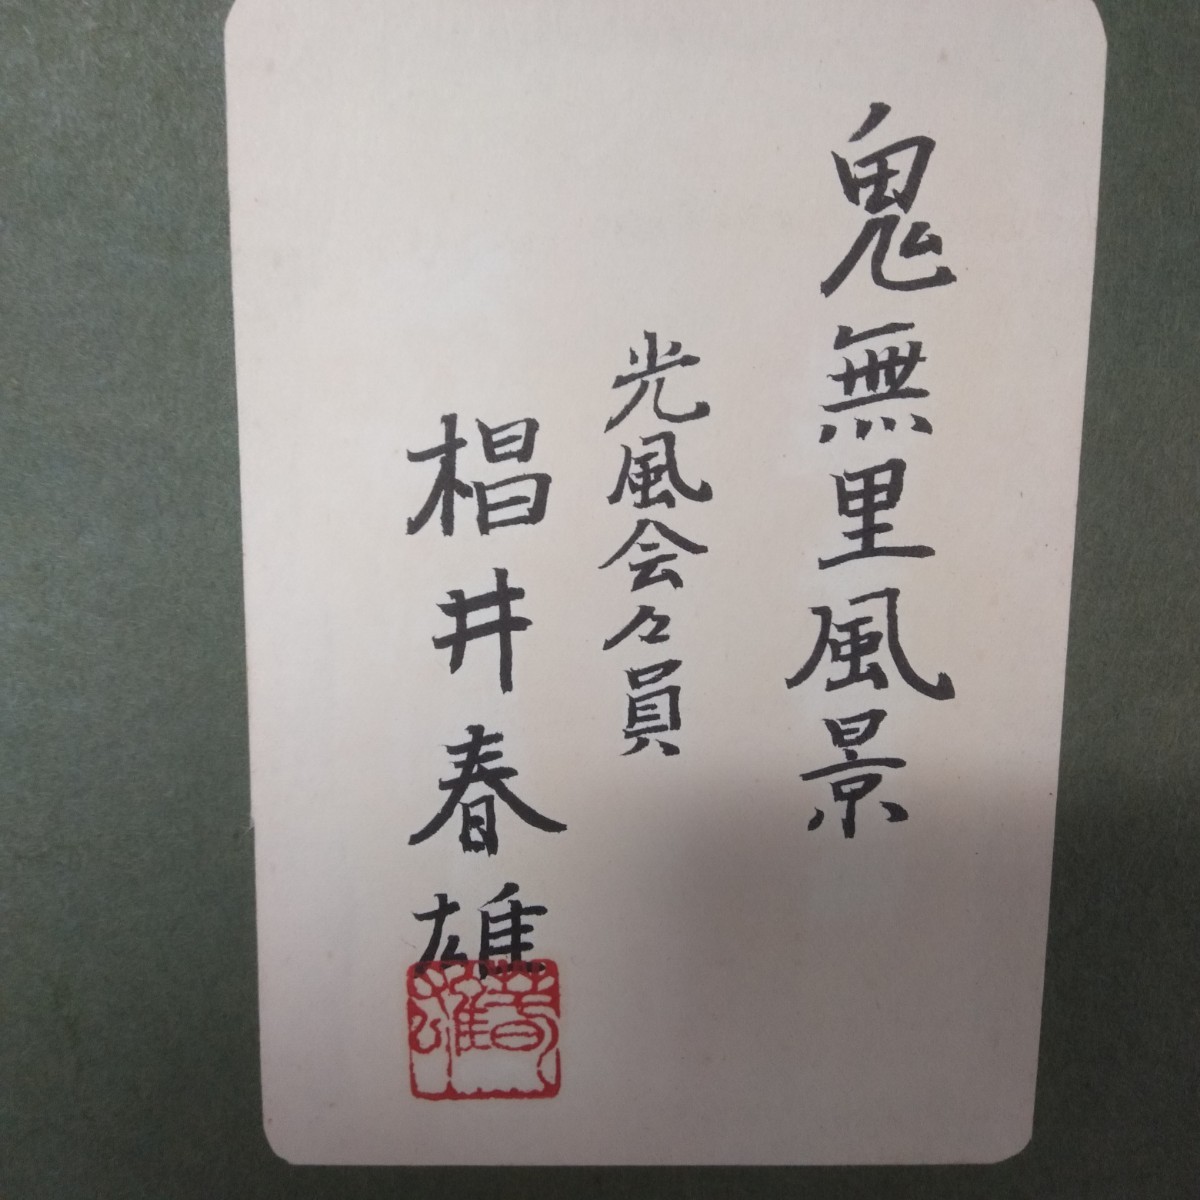 鬼無里風景
光風会々員
椙井春雄
春雄